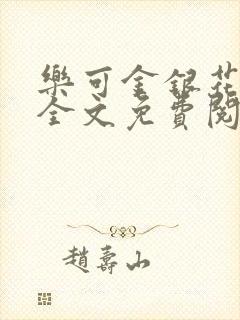 樂可金銀花
全文免費閱
趙壽山